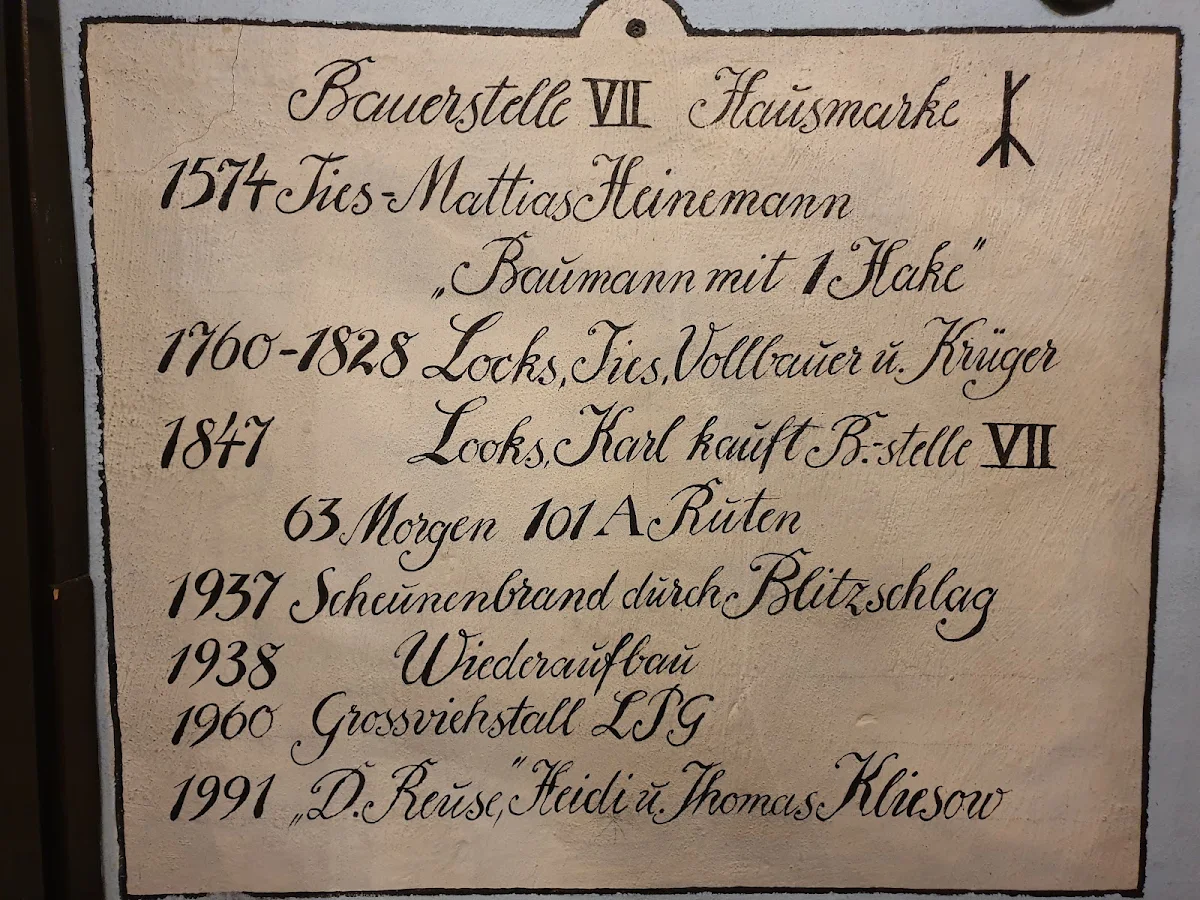 Bauerstelle VII Hausmarke
1574 Ties-Mattias Heinemann
„Baumann mit 1 Hake"
1760-1828 Locks, Ties, Vollbauer u. Krüger
1847 Looks, Karl kauft B.-stelle VII
63 Morgen 101 A Ruten
1937 Scheunenbrand durch Blitzschlag
1938 Wiederaufbau
1960 Grossviehstall LPG
1991 „D. Reuse," Heidi u. Thomas Kliesow